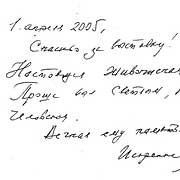 1. апреля 2005,
Спасибо за выставку!
Настоящая живопись
Проще Светом,
Человеком.
Вечная ему память.
Искренне